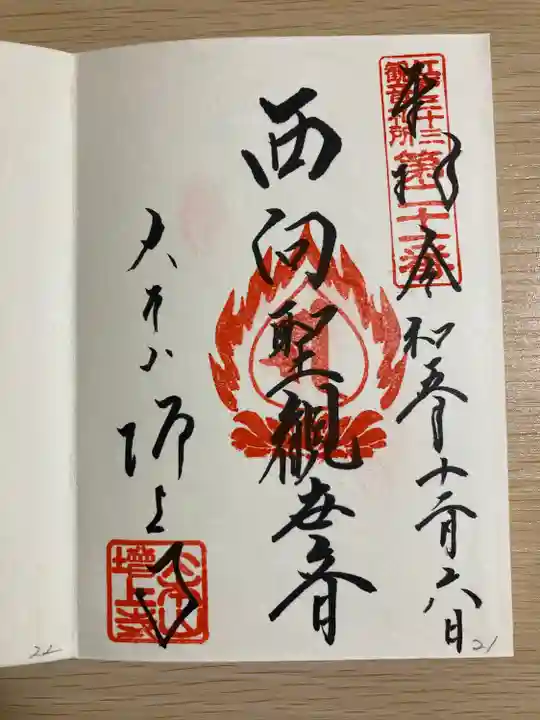 江戸三十三
観音札所
第二十一番
奉拝 令和五年十二月六日
西向聖観世音
大本山増上寺
増上寺
22
21